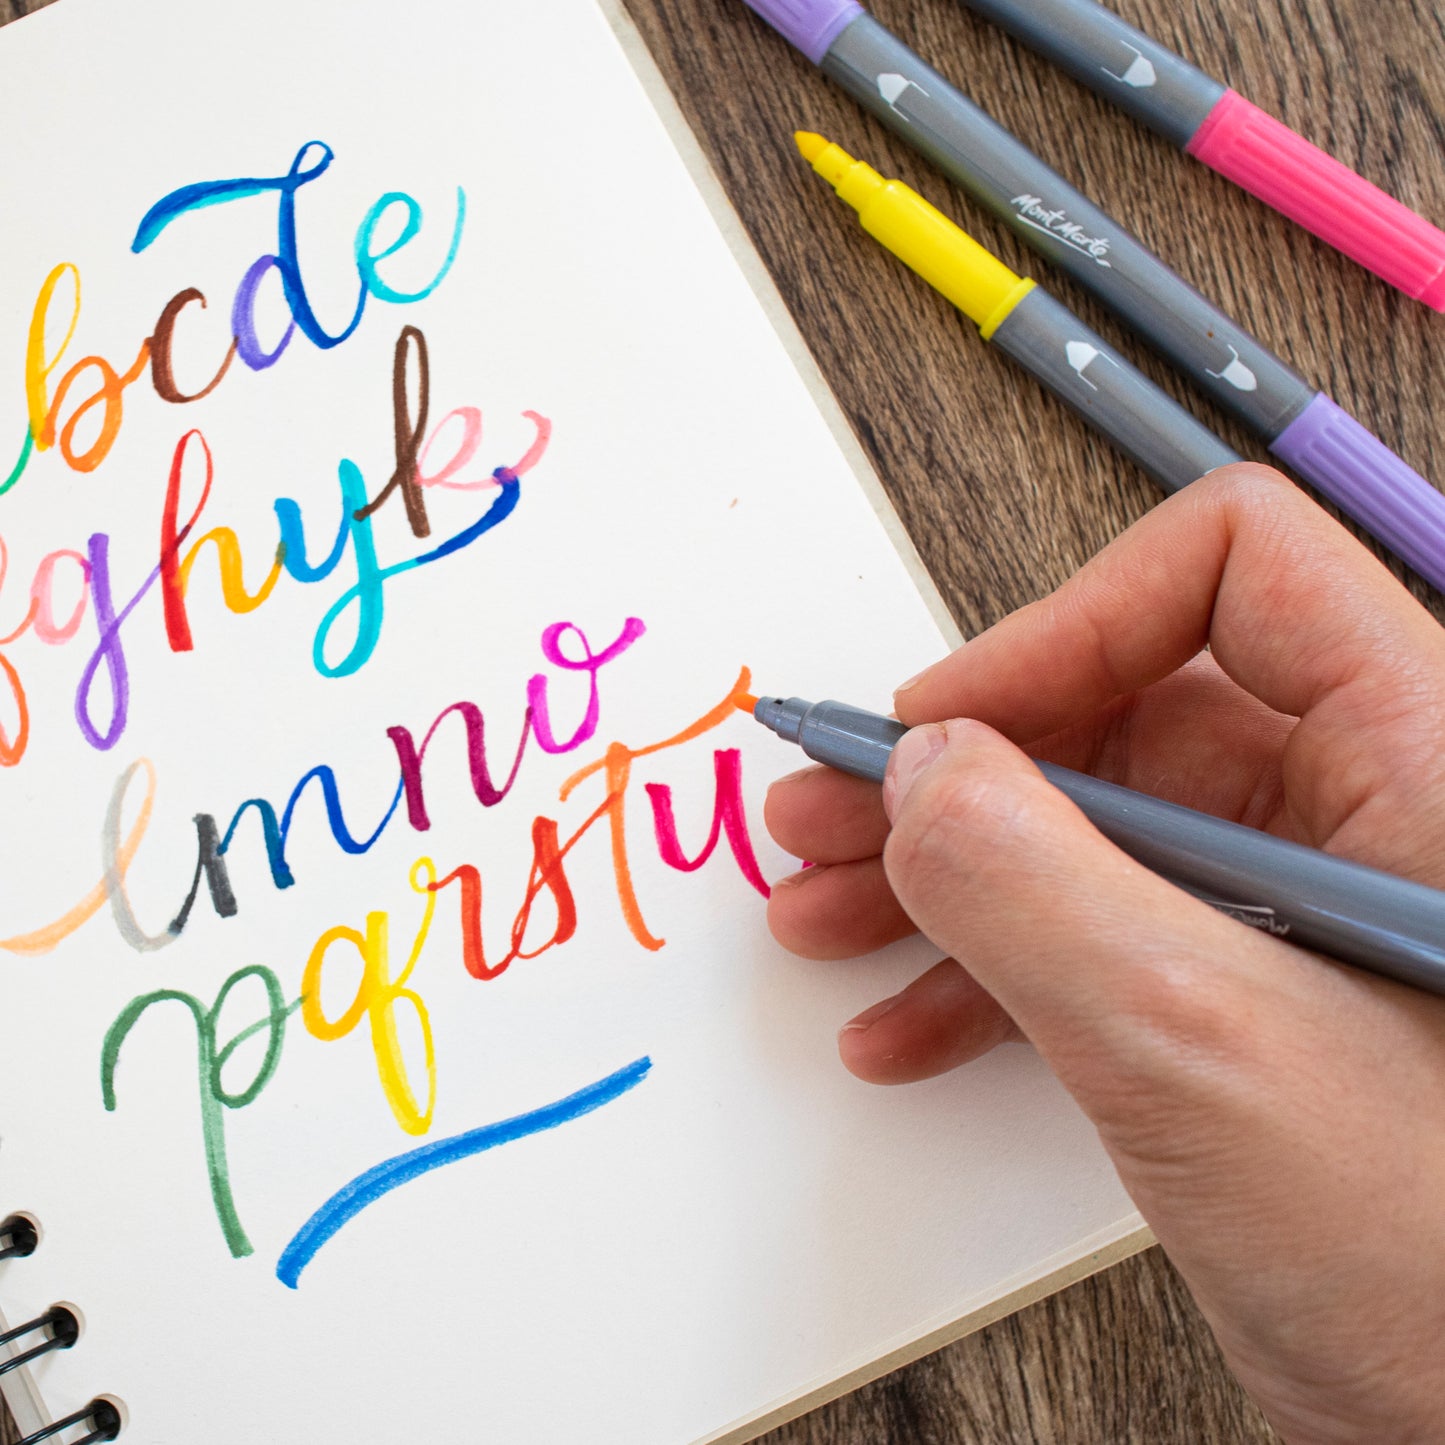 bcde
fghijk
lmno
pqrstu
Mont Marte